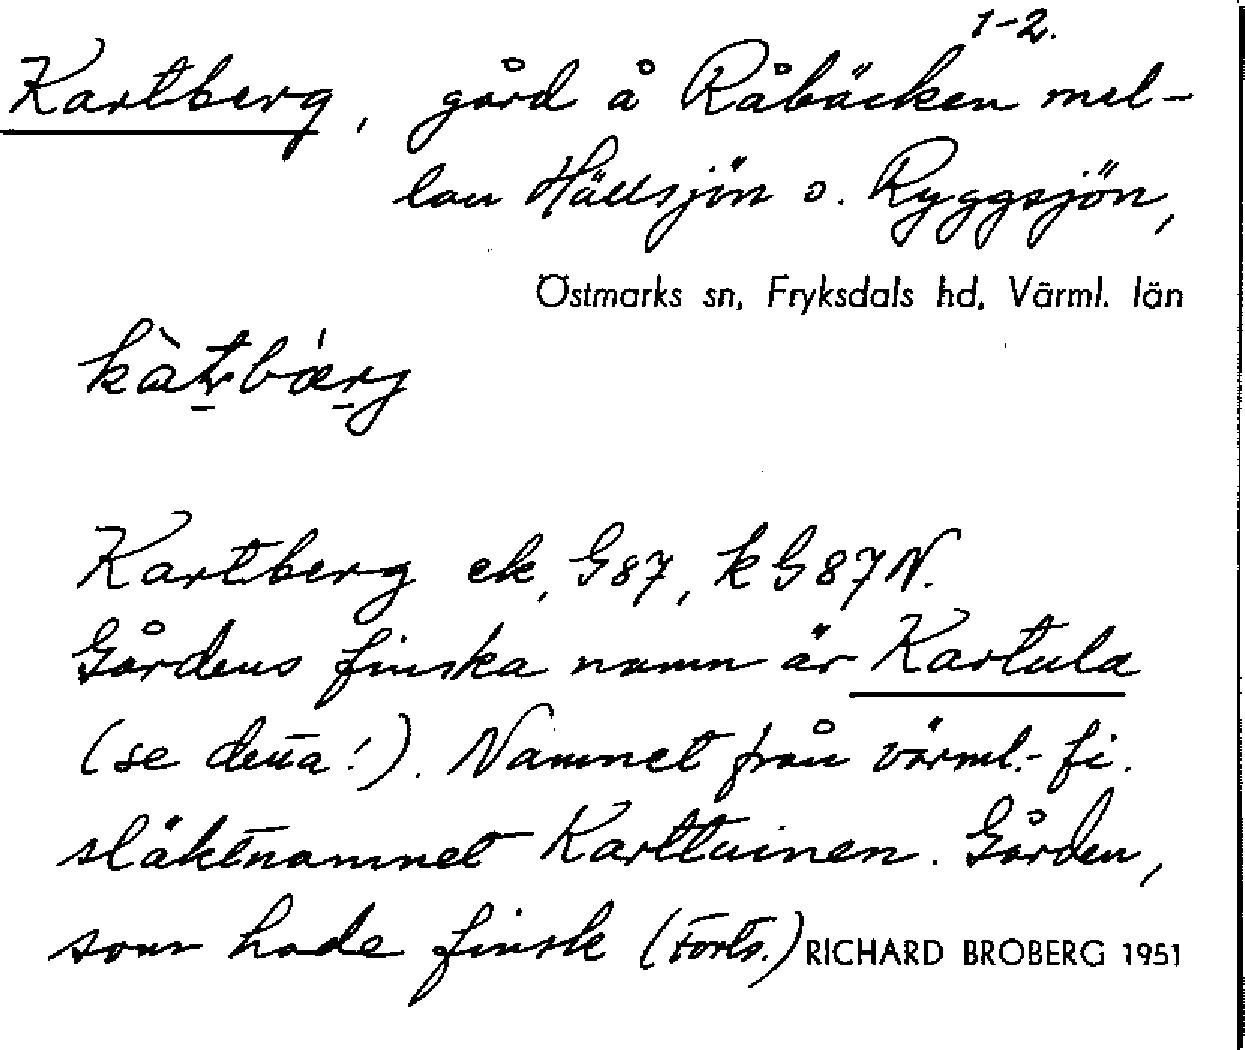 1-2.
Kartberg, gård å Råbäcken mel-
lan Hällsjön o. Ryggsjön,
Östmarks sn, Fryksdals hd, Värml. län
Kartberg ek, G87, k G87N.
Gårdens finska namn är Kartula
(se detta!). Namnet från värml.-fi.
släktnamnet Karttuinen. Gården,
som hade finsk (Forts.) RICHARD BROBERG 1951